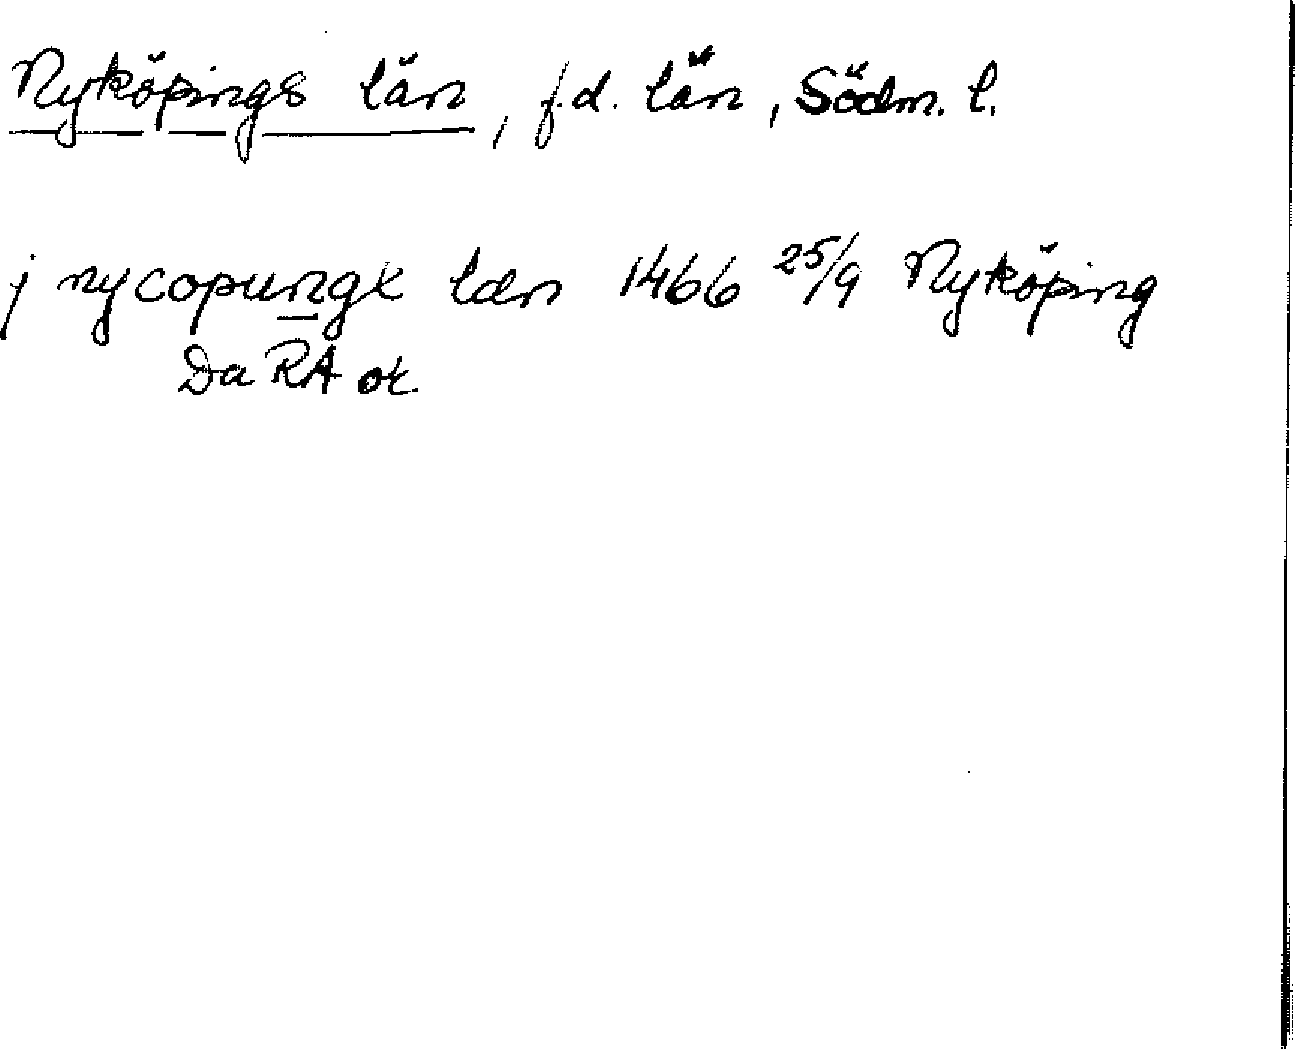 Nyköpings län, f.d. län, Södm. l.
j nycopungx læn 1466 25/9 Nyköping
Da RA or.